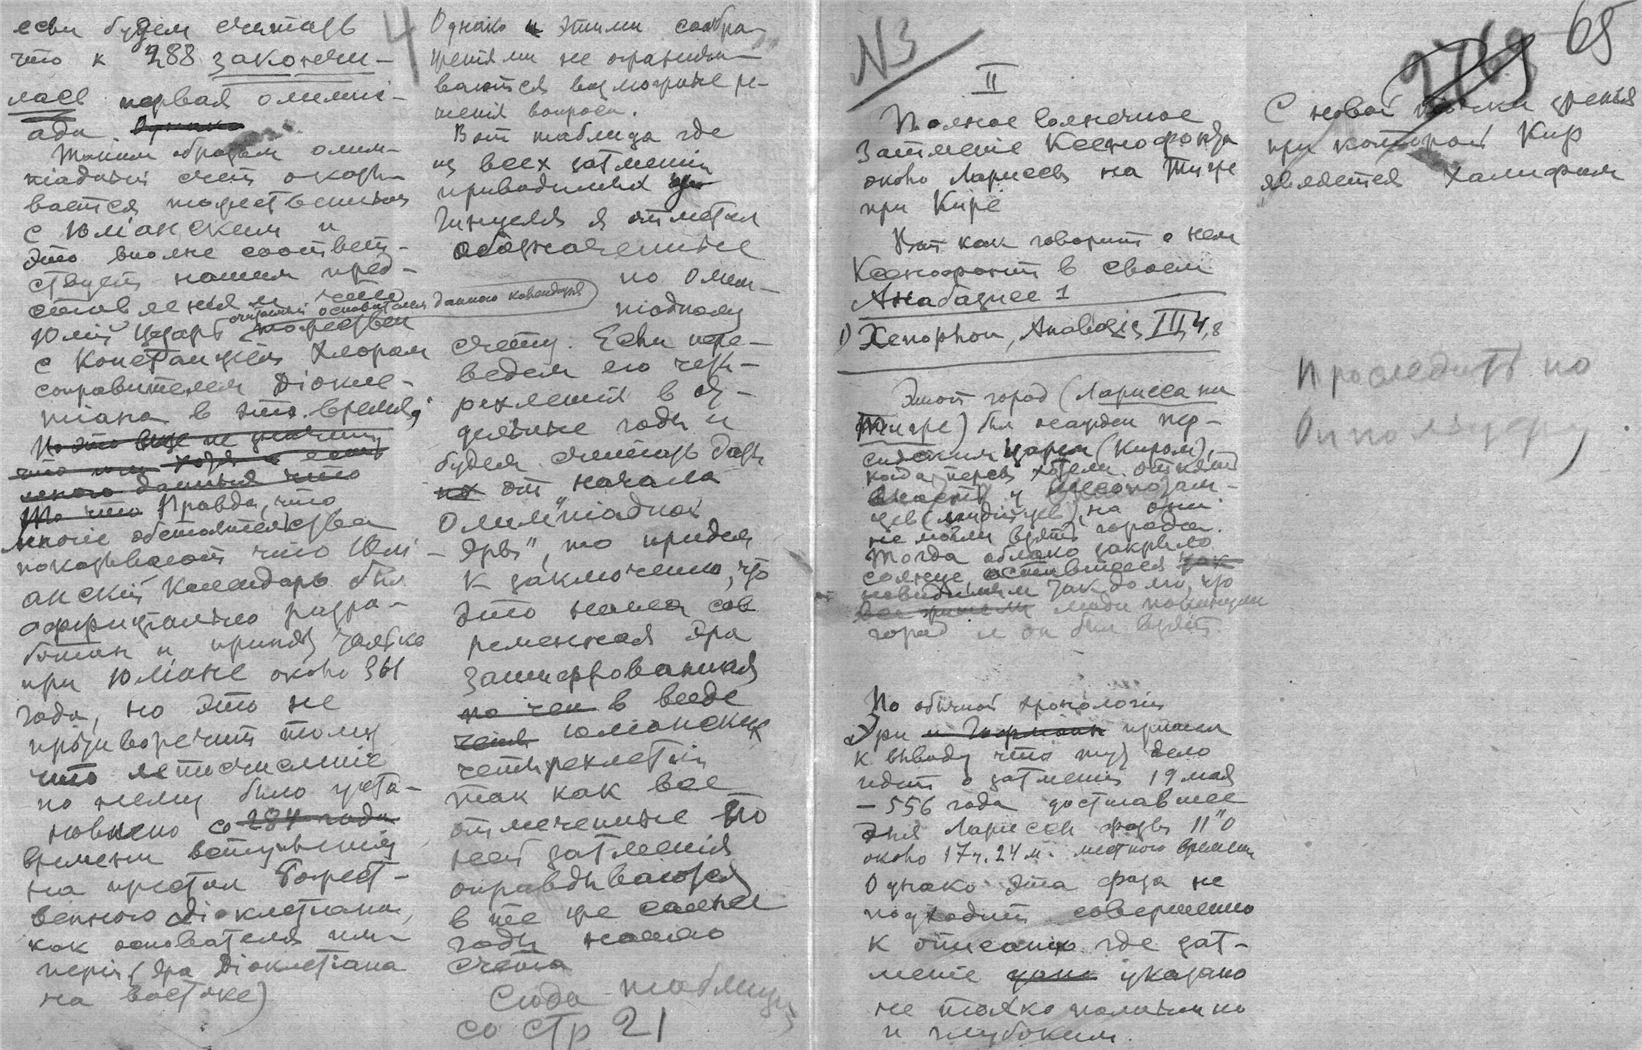 если будем считать
что к 288 закончи-
лась первая олимпи-
ада. Однако
Таким образом олим-
піадный счет оказы-
вается тождественным
с Юліанским и
это вполне соответ-
ствует нашим пред-
ставленіям
Юлій Цезарь считаемый основателем данного календаря тождествен
с Констанціем Хлором
соправителем Діокле-
тіана в это время,
Но это еще не значит
много данных что
То что Правда, что
многіе обстоятельства
показывают что Юлі-
анскій Календарь был
оффиціально разра-
ботан и принят
при Юліане около 361
года, но это не
противоречит тому
что летосчисленіе
по нему было уста-
новлено со 284 года
времени вступленія
на престол Божест-
венного Діоклетіана,
как основателя им-
періи (эра Діоклетіана
на востоке)
4
Однако и этими сообра-
женіями не ограничи-
ваются возможные ре-
шенія вопроса.
Вот таблица где
из всех затменій
приводимых у
Гинцеля я отметил
обозначенные
по Олим-
піадному
счету. Если пере-
ведем его четы-
рехлетія в от-
дельные годы и
будем считать даты
их от начала
Олимпіадной
"Эры", то придем
к заключенію, что
это наша сов
ременная эра
зашифрованная
по чем в виде
юліанских
четырехлетій
так как все
отмеченные по
ней затменія
оправдываются
в те же самые
годы нашего
счета
Сюда таблицу
со стр 21
N3
II
Полное солнечное
Затменіе Ксенофонта
около Лариссы на Тигре
при Кире
Вот как говорит о нем
Ксенофонт в своем
Анабазисе 1
1) Xenophon, Anabasis III, 4, 8
Этот город (Ларисса на
Тигре) был осажден пер-
сидским царем (Киром),
когда персы хотели отнять
власть у
цев (мидійцев), но они
не могли взять города.
Тогда облако закрыло
солнце, оставшееся
невидимым так долго, что
все жители люди покинули
город и он был взят.
По обычной хронологіи
Эри и Гофман пришли
к выводу что тут дело
идет о затменіи 19 мая
— 556 года доставшее
для Лариссы фазы 11"0
около 17ч. 24 м. местного времени
Однако эта фаза не
подходит совершенно
к описанію где зат-
меніе указано
не только полным но
и глубоким.
2769 65
С новой точки зренія
при которой Кир
является Халифом
Проследить по
Оппользеру